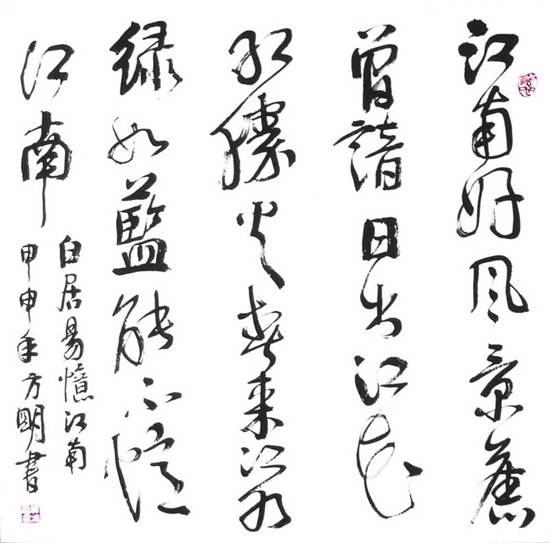 江南好风景舊
曾諳日出江花
红勝火春来江水
绿如藍能不憶
江南
白居易憶江南
甲申年方明書